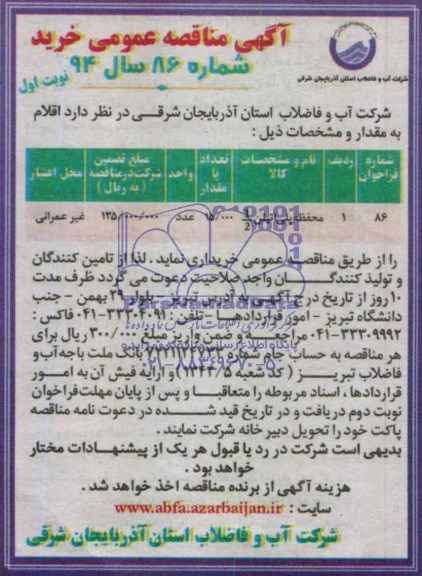 آگهی مناقصه عمومی خرید
شماره ۸۶ سال ۹۴
نوبت اول
شرکت آب و فاضلاب استان آذربایجان شرقی
شرکت آب و فاضلاب استان آذربایجان شرقی در نظر دارد اقلام
به مقدار و مشخصات ذیل :
شماره فراخوان ردیف نام و مشخصات کالا تعداد یا مقدار واحد مبلغ تضمین شرکت در مناقصه (به ریال) محل اعتبار
۸۶ ۱ محفظه پلی اتیلن ۱/۲ ۱۵/۰۰۰ عدد ۱۳۵/۰۰۰/۰۰۰ غیر عمرانی
را از طریق مناقصه عمومی خریداری نماید. لذا از تامین کنندگان
و تولید کنندگان واجد صلاحیت دعوت می گردد ظرف مدت
۱۰ روز از تاریخ درج آگهی به آدرس تبریز - بلوار ۲۹ بهمن - جنب
دانشگاه تبریز - امور قراردادها - تلفن : ۳۳۳۰۴۰۹۱-۰۴۱ فاکس :
۳۳۳۰۹۹۹۲-۰۴۱ و مبلغ ۳۰۰/۰۰۰ ریال برای
هر مناقصه به حساب جام شماره بانک ملت باجه آب و
فاضلاب تبریز ( کد شعبه ) و ارایه فیش آن به امور
قراردادها ، اسناد مربوطه را متعاقبا و پس از پایان مهلت فراخوان
نوبت دوم دریافت و در تاریخ قید شده در دعوت نامه مناقصه
پاکت خود را تحویل دبیر خانه شرکت نمایند .
بدیهی است شرکت در رد یا قبول هر یک از پیشنهادات مختار
خواهد بود .
هزینه آگهی از برنده مناقصه اخذ خواهد شد .
سایت : www.abfa.azarbaijan.ir
شرکت آب و فاضلاب استان آذربایجان شرقی